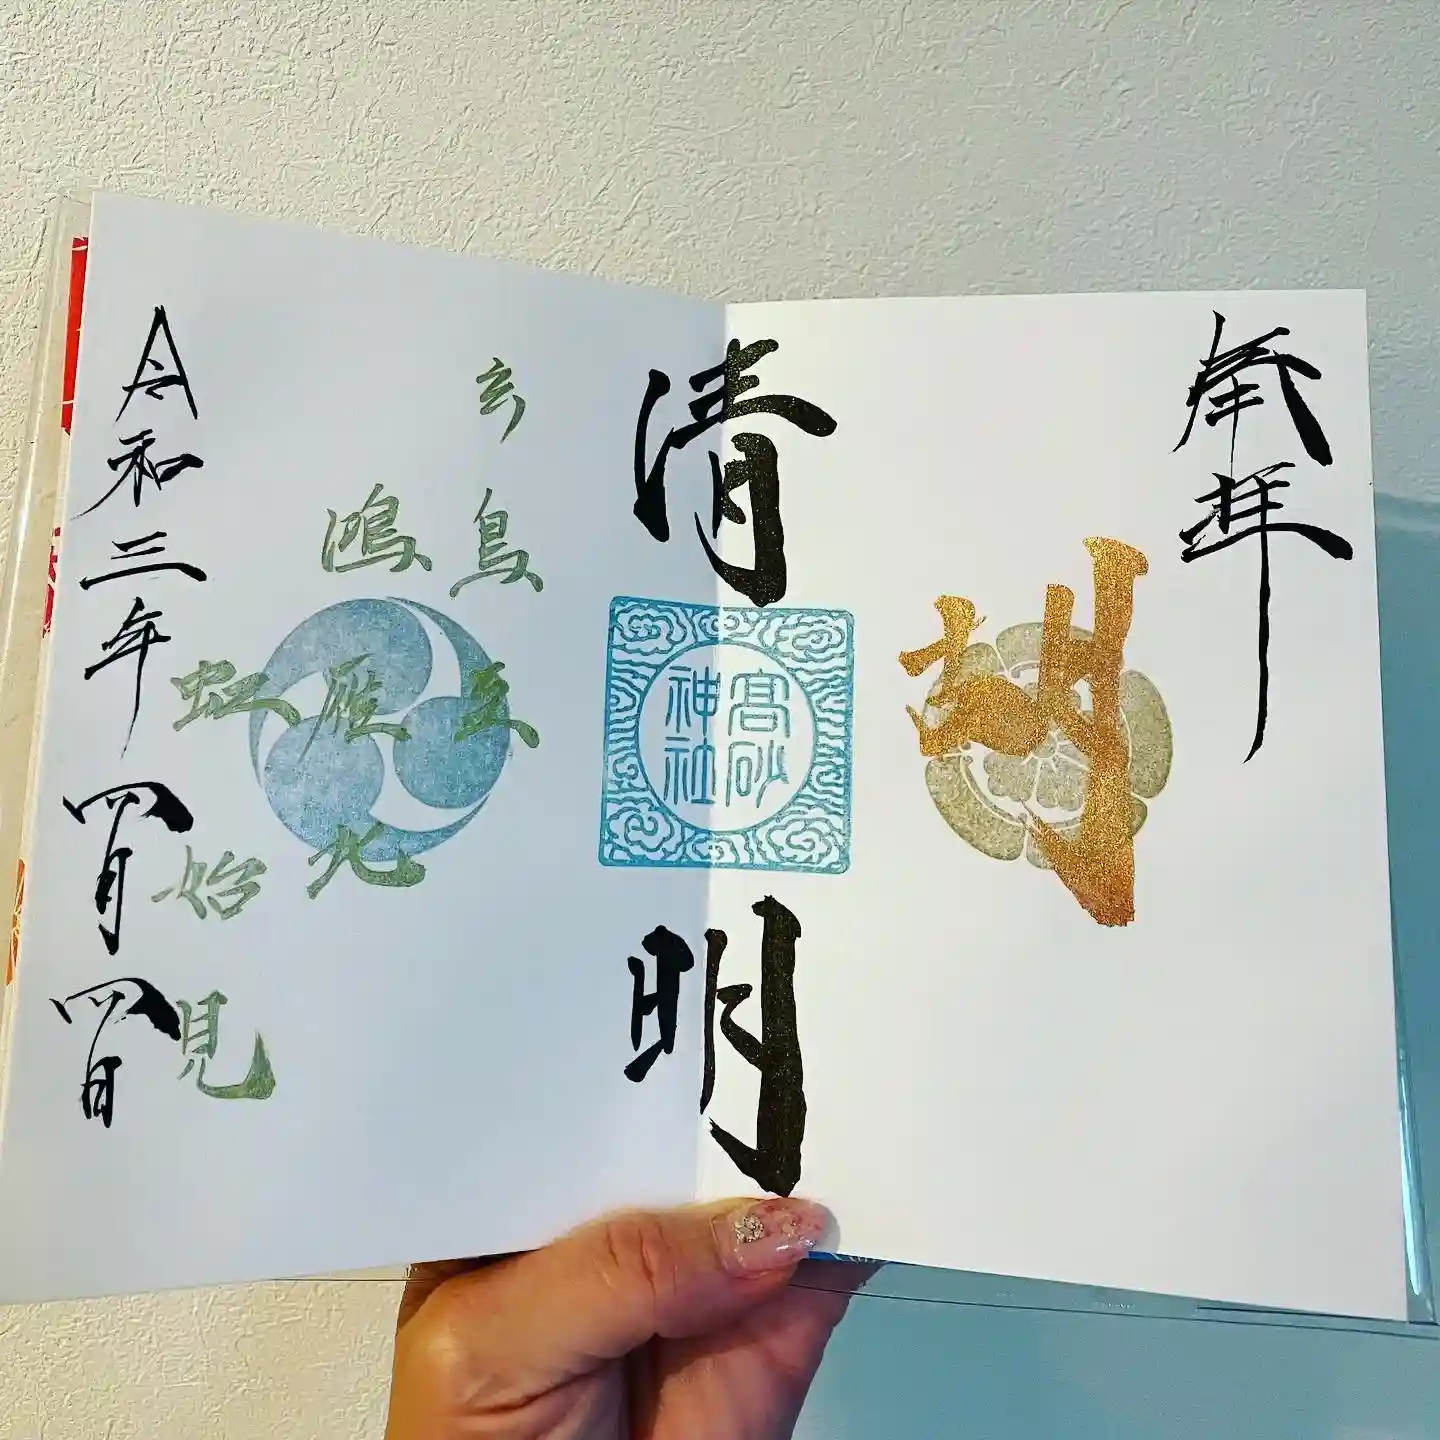 奉拝
胡
清明
高砂
神社
玄鳥至
鴻雁北
虹始見
令和三年四月四日